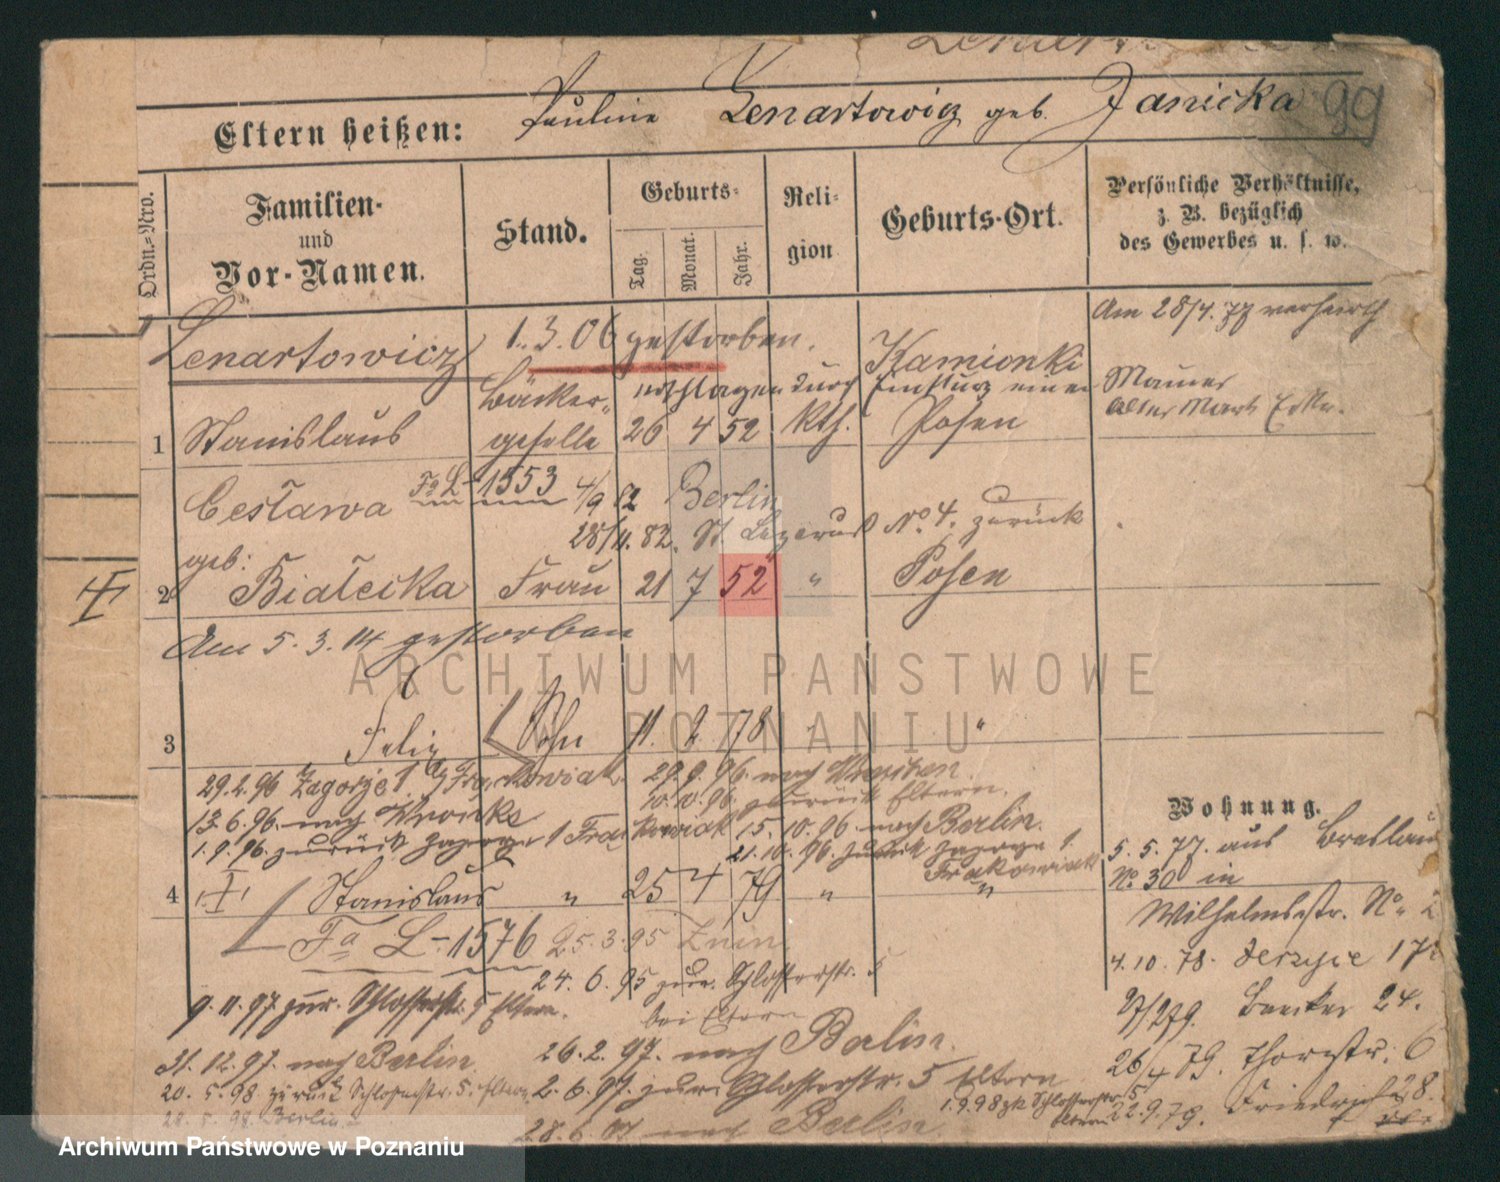 Eltern heißen: Pauline Lenartowicz geb. Janicka 99
Ordn.=Nro.
Familien- und Vor-Namen.
Stand.
Geburts-
Tag. Monat. Jahr.
Reli- gion
Geburts-Ort.
Persönliche Verhältnisse, z. B. bezüglich des Gewerbes u. s. w.
Am 28/4. 77 verheirth
Lenartowicz 1. 3. 06 gestorben. Kamionki
erschlagen durch Einsturz einer Mauer
Alter Markt Ecke.
1 Stanislaus Bäcker- geselle 26 4 52 kth. Posen
Cesława Fa L 1553 4/9 82 Berlin
28/11. 82. St. Lazarus No 4. zurück
geb:
2 Białecka Frau 21 7 52 " Posen
Am 5. 3. 14 gestorben
3 Felix Sohn 11. 2. 78 "
29.2.96 Zagorze 1. 29.9.96. nach
13.6.96. nach Wronke 10.10.96. zurück Eltern.
1.9.96. zurück Zagorze 1 15.10.96. nach Berlin.
21.10.96. zurück Zagorze 1.
4 Stanislaus " 25 4 79 " "
Fa L-1576 25.3.95 Znin
24.6.95 zur. Schlosserstr. 5
9.11.97 zur. Schlosserstr. 5 Eltern. bei Eltern
31.12.97. nach Berlin 26.2.97. nach Berlin.
20.5.98 zurück Schlosserstr. 5. Eltern 2.6.97. zur. Schlosserstr. 5 Eltern
28.5.98. Berlin. nach Berlin
1.9.98 zk Schlosserstr. 5
Eltern
Wohnung.
5. 5. 77. aus Breslau
No 30 in
Wilhelmsstr. No
4. 10. 78. Jerzyce
Baecker 24.
26/4 79. Thorstr. 6
22.9.79. Friedrichs 28.
ARCHIWUM PAŃSTWOWE
POZNANIU
Archiwum Państwowe w Poznaniu